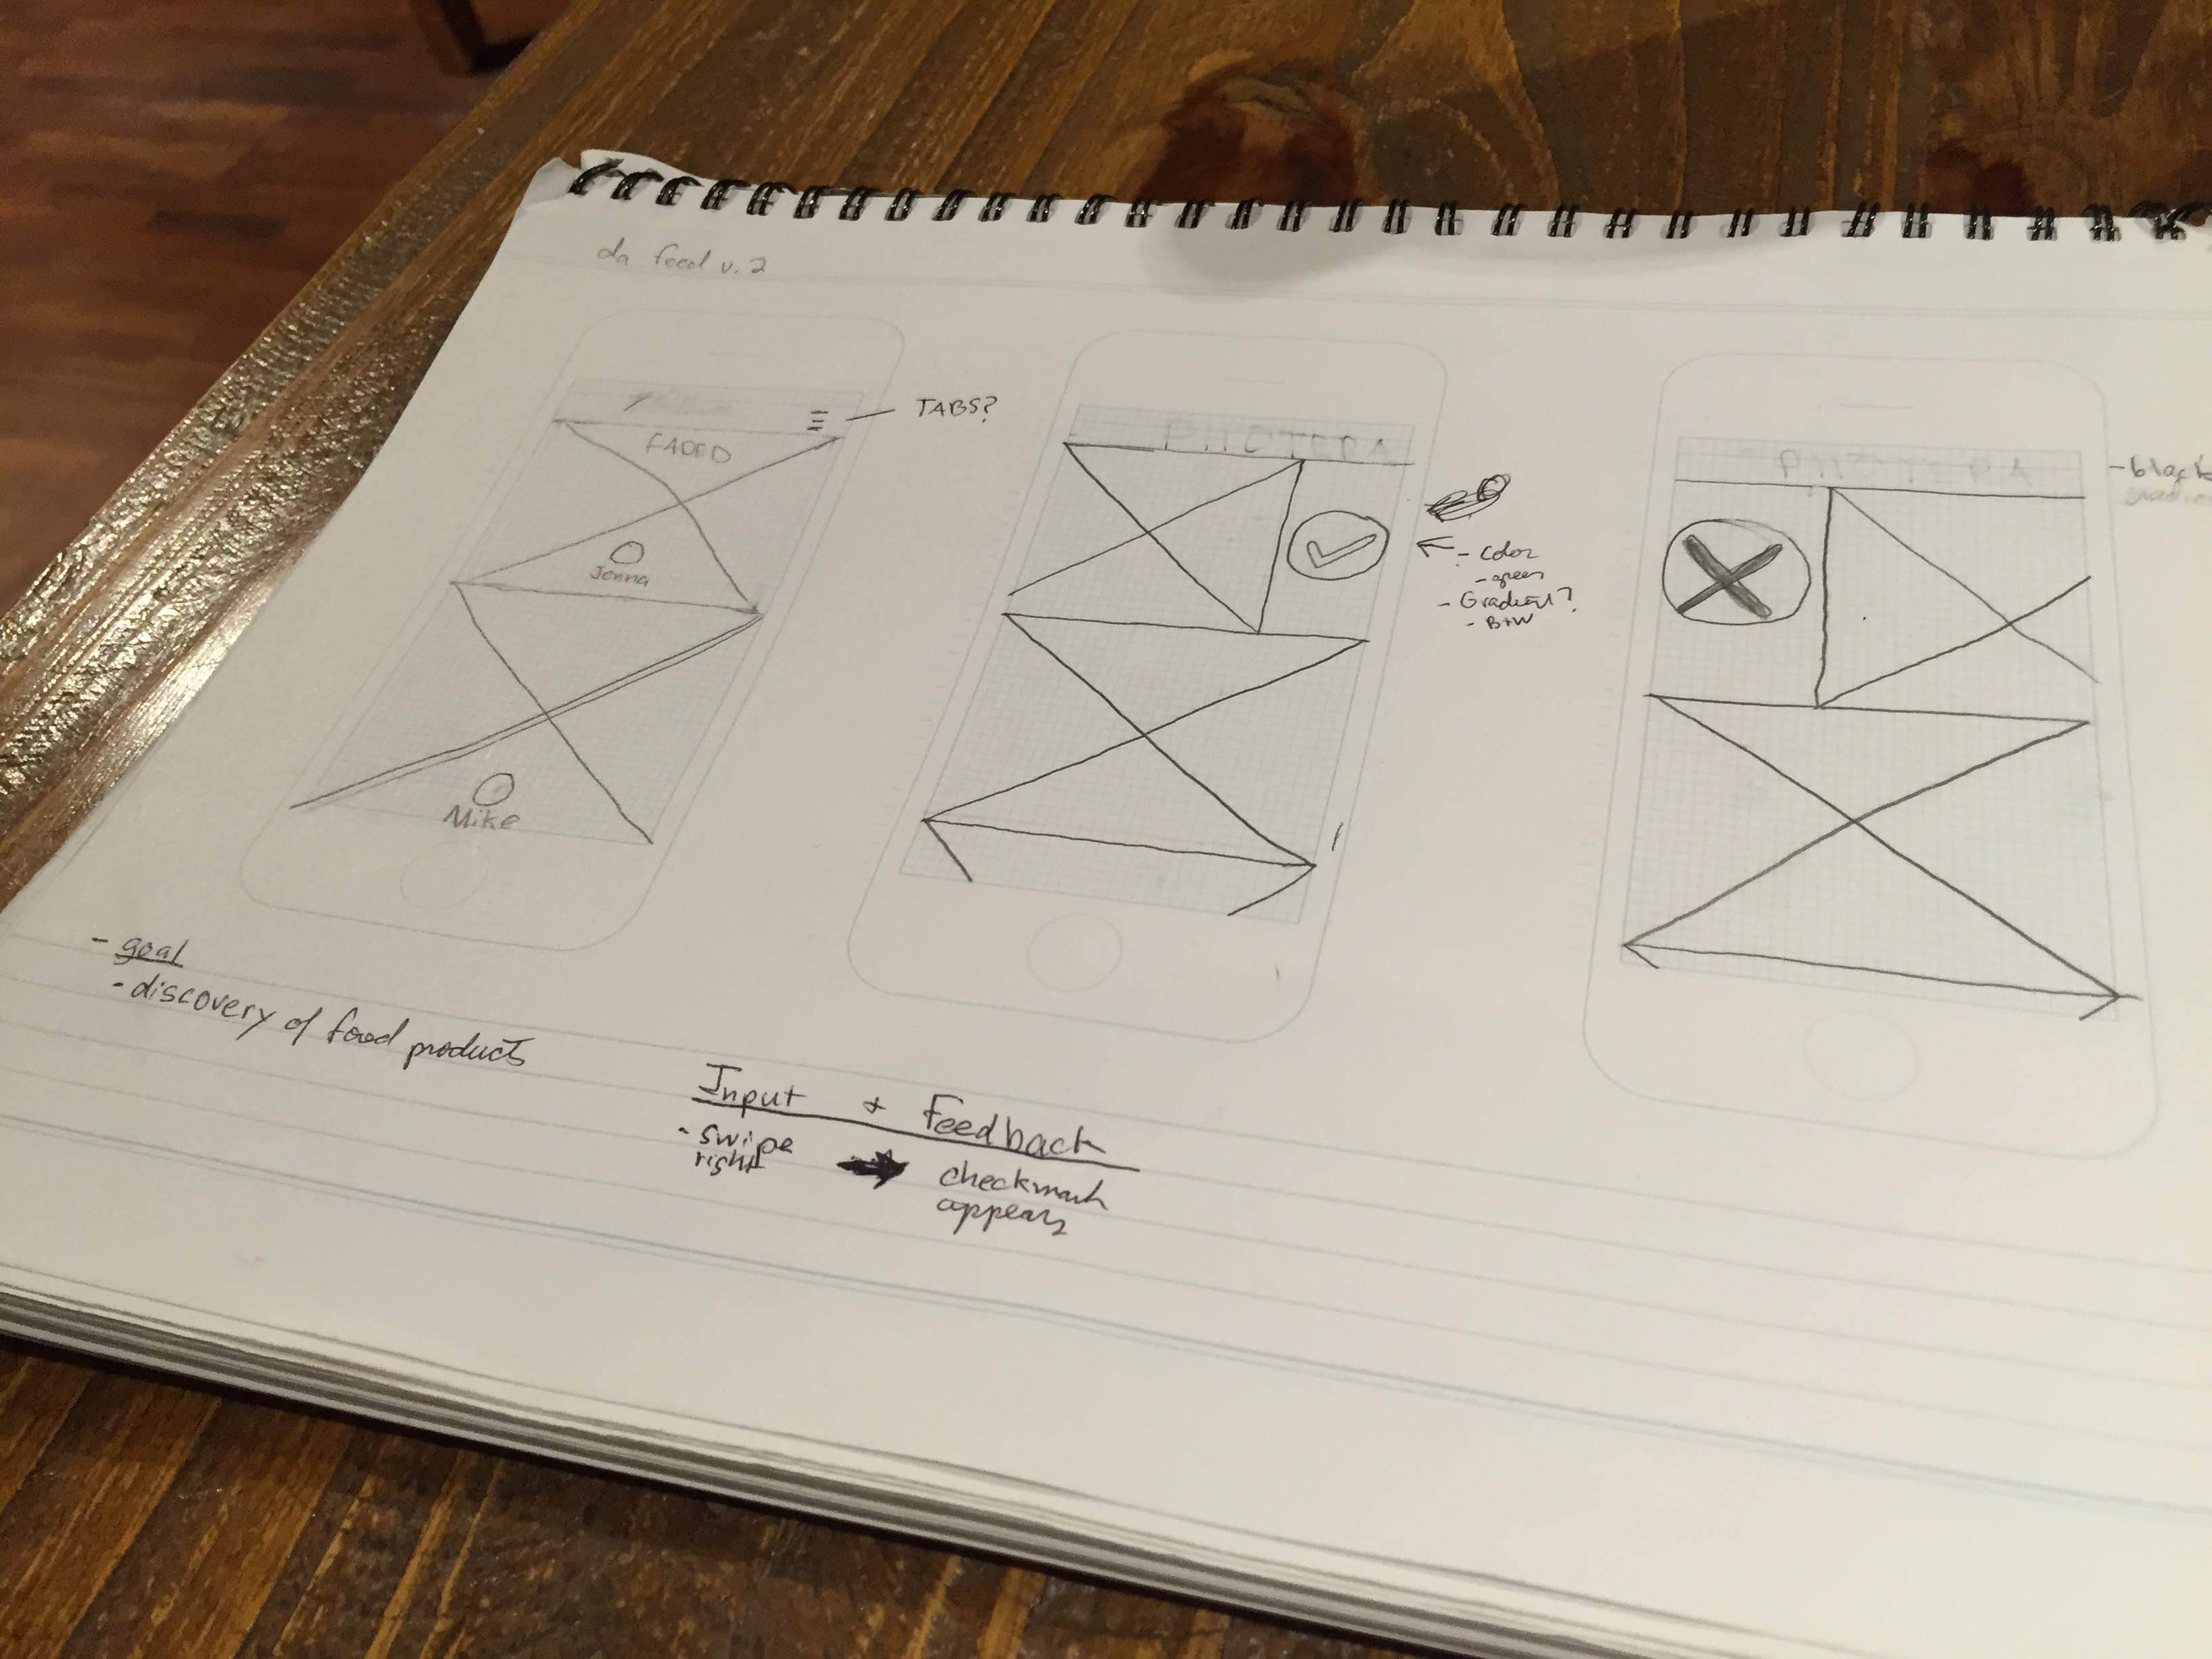 da feed v. 2
TABS?
FADED
Jenna
Mike
PHOTERA
- color
- green
- Gradient?
- B+W
PHOTERA
- black
- goal
- discovery of food products
Input + Feedback
- swipe
right
checkmark
appears